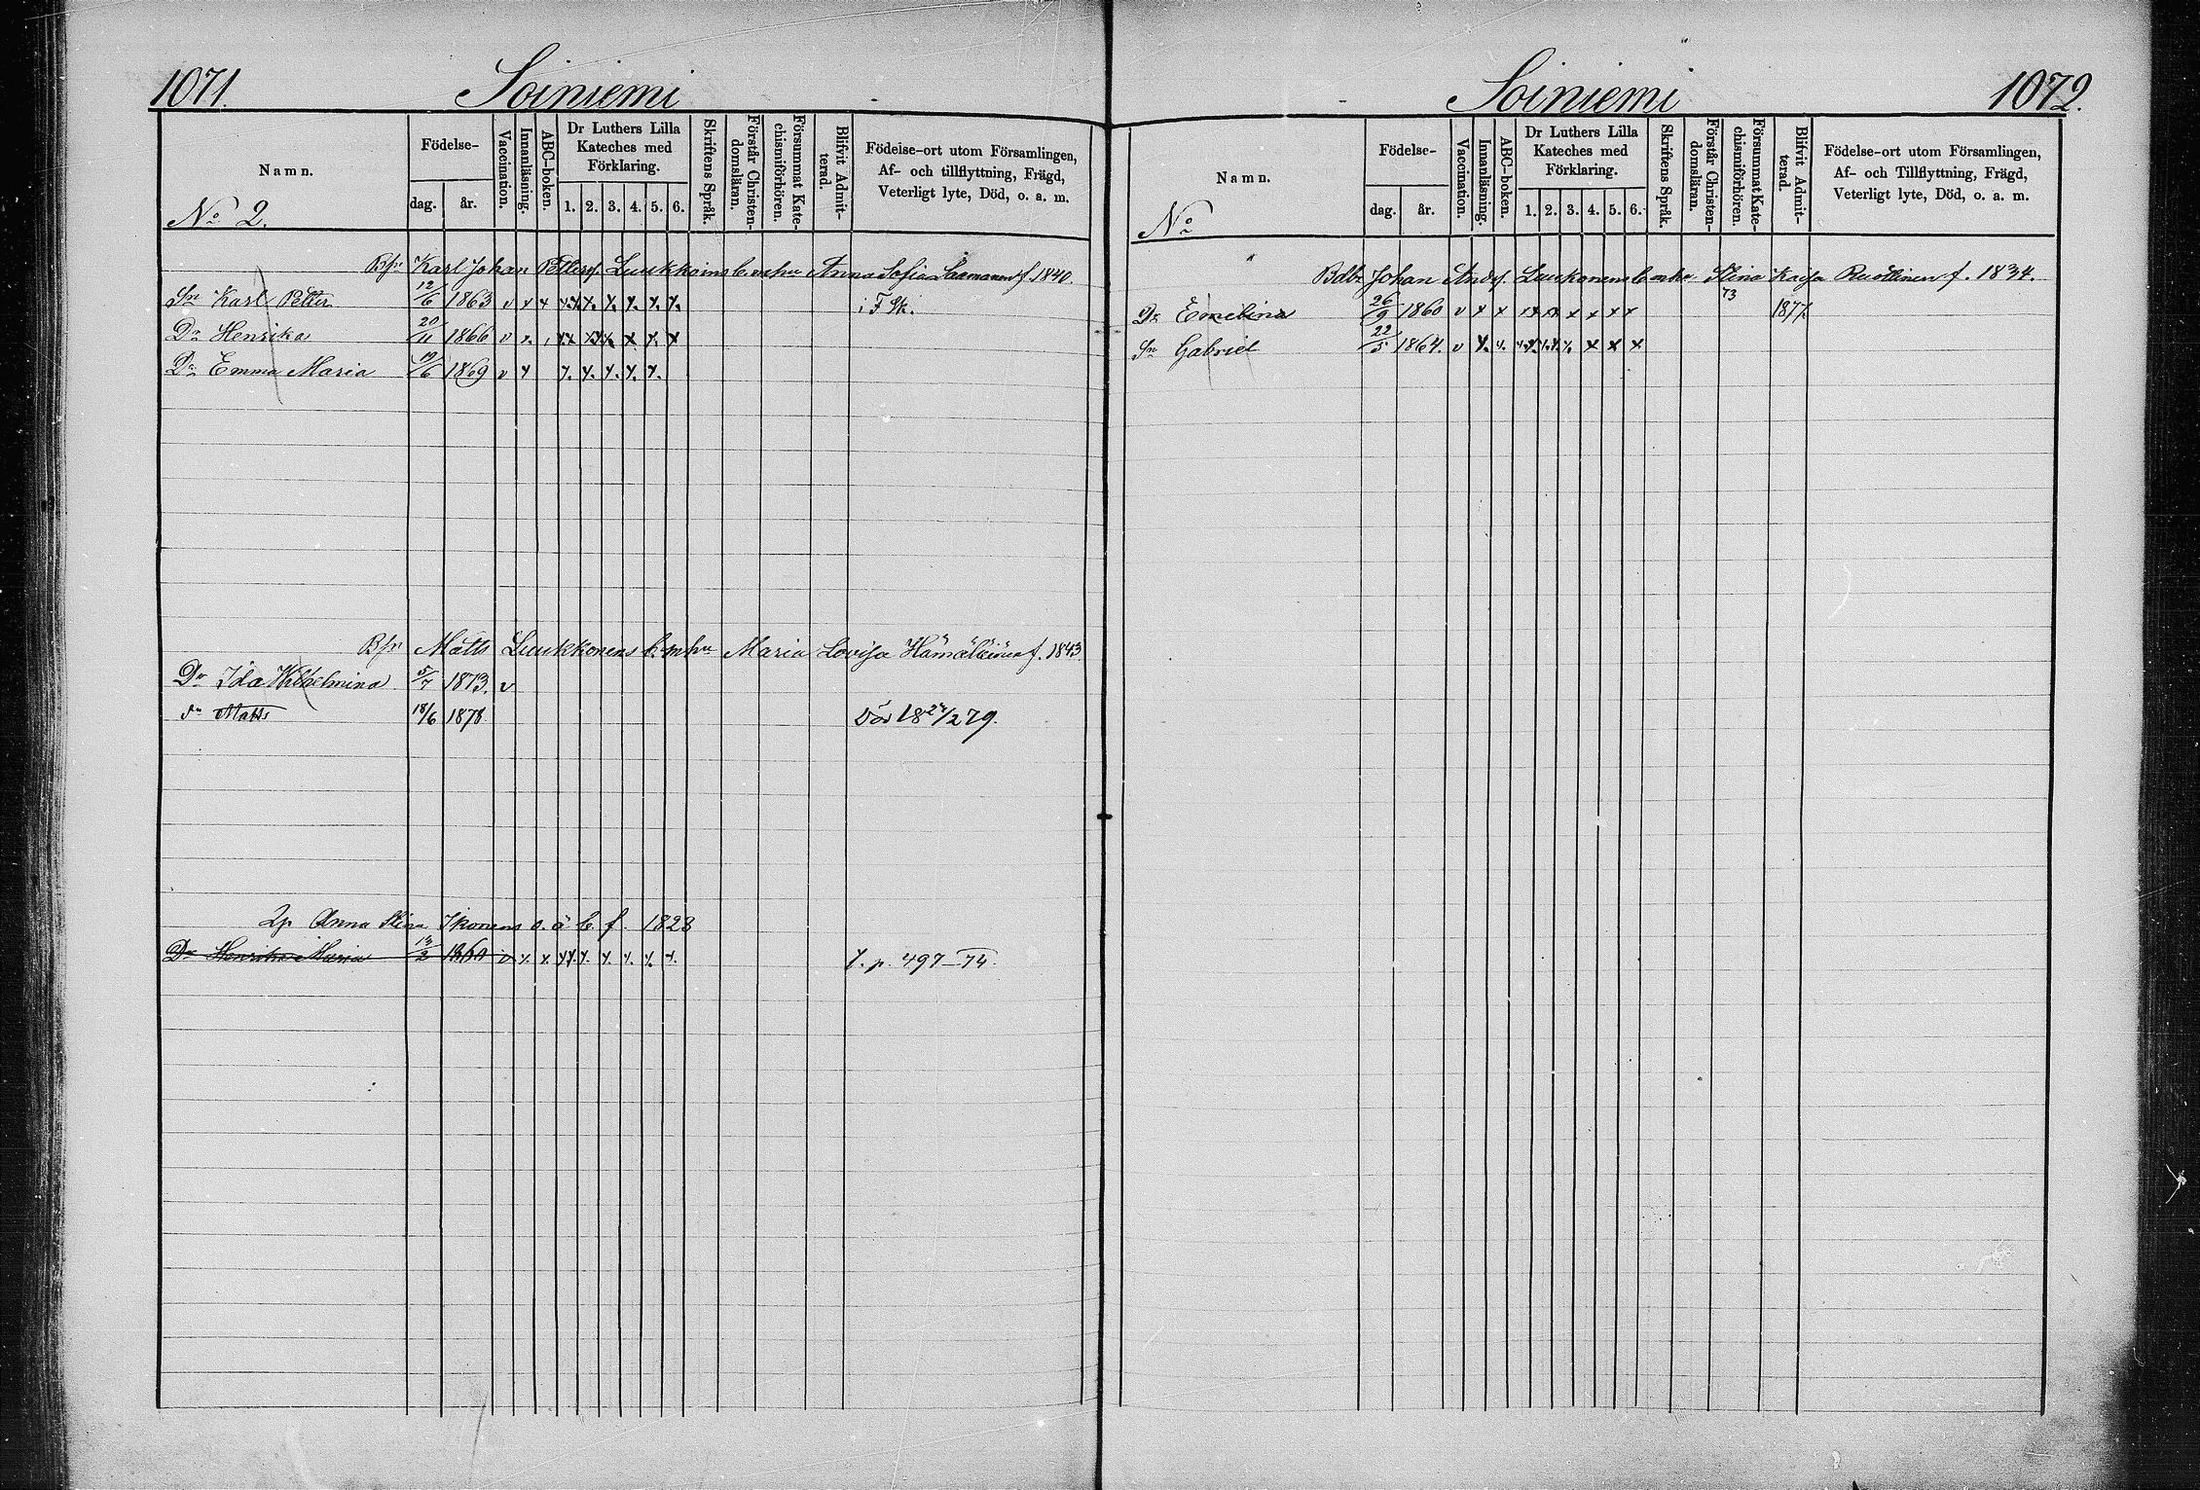 1071. Soiniemi
Namn. Födelse- Vaccination. Innanläsning. ABC-boken. Dr Luthers Lilla Kateches med Förklaring. Skriftens Språk. Förstår Christen-domsläran. Försummat Kate-chismiförhören. Blifvit Admit-terad. Födelse-ort utom Församlingen, Af- och tillflyttning, Frägd, Veterligt lyte, Död, o. a. m.
dag. år. 1. 2. 3. 4. 5. 6.
No 2.
Karl Johan Petters. Luukkoins b. o. hu Anna Sofia f. 1840.
Sn Karl Petter 12/6 1863 v x x x x x. x. x. x. x. i F Sk.
Dr Henrika 20/11 1866 v x. x x x x x x. x
Dr Emma Maria 19/6 1869 v x x. x. x. x. x.
Matts Luukkonens b. o. hu Maria Lovisa Hämäläinen f. 1843
Dr Ida Wilhelmina 5/7 1873. v
Sn Matts 18/6 1878 Död 18 24/2 79.
Anna Stina Ikonens o. ä b. f. 1828
Dr Henrika Maria 13/2 1860 v x. x. x x. x. x. x. x. x. p. 497–74.
Soiniemi 1072.
Namn. Födelse- Vaccination. Innanläsning. ABC-boken. Dr Luthers Lilla Kateches med Förklaring. Skriftens Språk. Förstår Christen-domsläran. Försummat Kate-chismiförhören. Blifvit Admit-terad. Födelse-ort utom Församlingen, Af- och Tillflyttning, Frägd, Veterligt lyte, Död, o. a. m.
dag. år. 1. 2. 3. 4. 5. 6.
No
Johan Ands. Luukonens b. o. hu Stina Kaisa f. 1834.
Dr Emelina 26/9 1860 v x x x x x x x x x 73 1877
Sn Gabriel 22/5 1864. v x. x. x. x. x. x. x. x x x